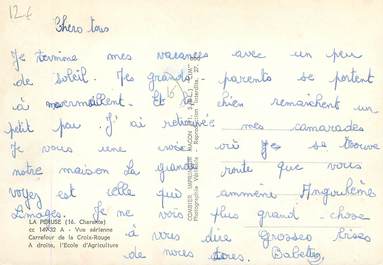 12 €
Chers tous
Je termine mes vacances avec un peu
de soleil. Mes grands parents se portent
à mermeillent. Et le chien remarchent un
petit peu. J'ai retrouvé mes camarades
Je vous une croix où je se trouve
notre maison La grande route que vous
voyez est celle qui ammène Angoulêmes
Limoges. Je ne vois plus grand chose
à vous dire Grosses bises
de nous tous. Babette,
LA PÉRUSE (16. Charente)
cc 14932 A - Vue aérienne
Carrefour de la Croix-Rouge
A droite, l'École d'Agriculture
COMBIER IMPRIMEUR MACON (71. S.&L.) "CIM"
Photographie Véritable - Reproduction Interdite